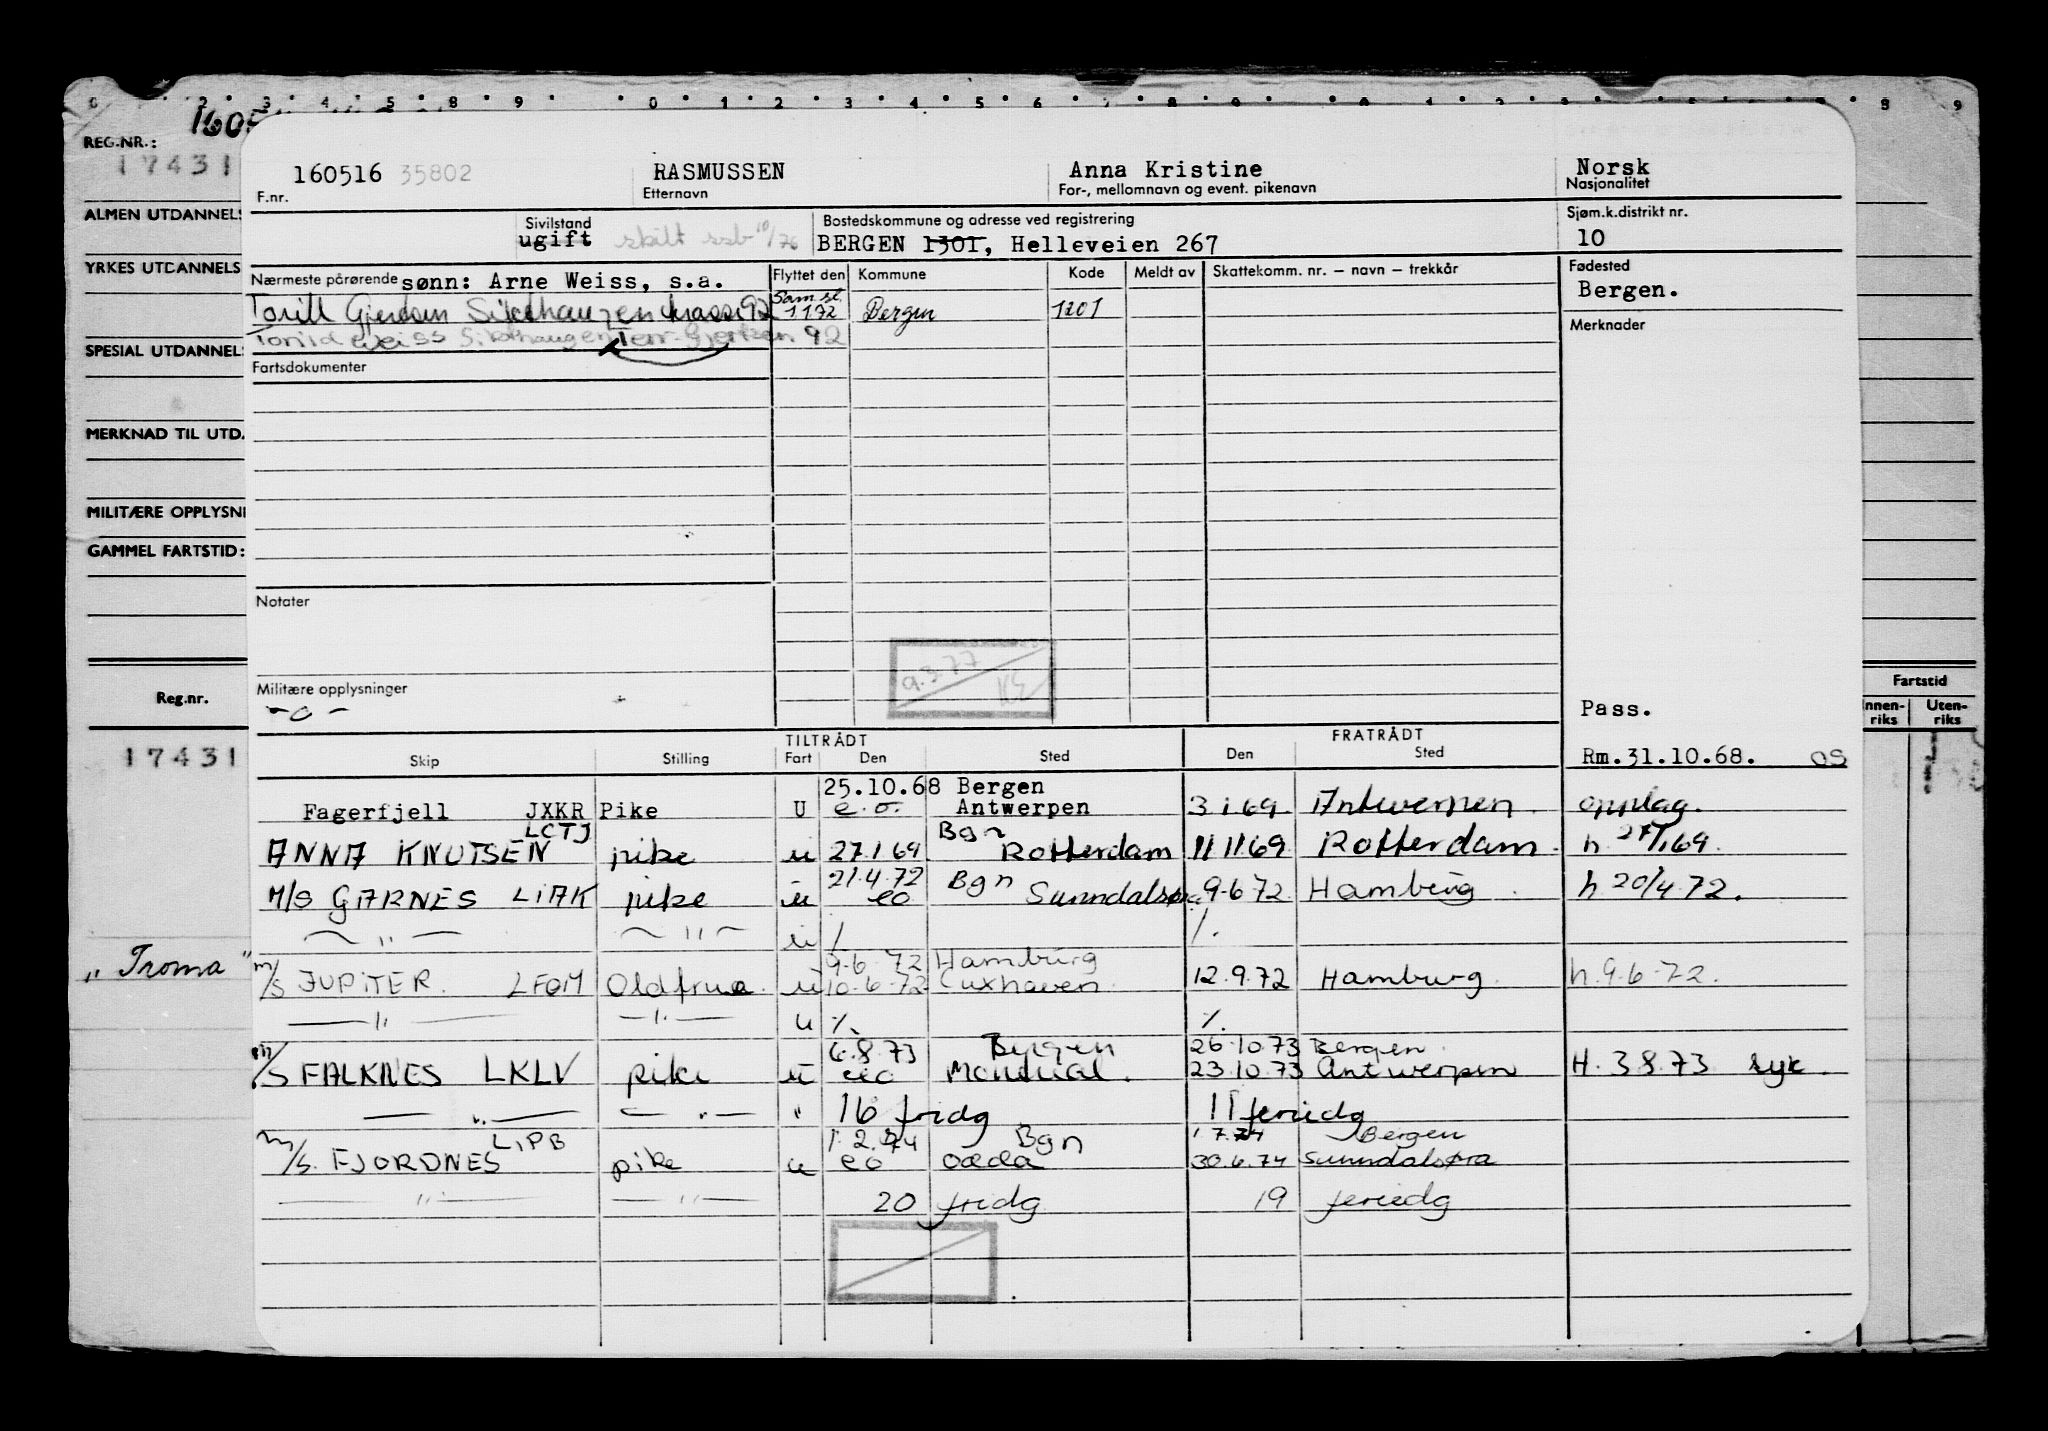 REG.NR.:
17431
160516 35802
F.nr.
RASMUSSEN
Etternavn
Anna Kristine
For-, mellomnavn og event. pikenavn
Norsk
Nasjonalitet
ALMEN UTDANNELS
Sivilstand
ugift skilt ssb 10/76
Bostedskommune og adresse ved registrering
BERGEN 1301, Helleveien 267
Sjøm.k.distrikt nr.
10
YRKES UTDANNELS
Nærmeste pårørende sønn: Arne Weiss, s.a.
Flyttet den Kommune Kode Meldt av Skattekomm. nr. – navn – trekkår
Fødested
Bergen.
Torill
Sam.sl.
1172 Bergen 1201
Merknader
92
SPESIAL UTDANNELS
Fartsdokumenter
MERKNAD TIL UTD.
MILITÆRE OPPLYSNI
GAMMEL FARTSTID:
Notater
9.3.77
Militære opplysninger
- o -
Pass.
Rm.31.10.68. OS
Reg.nr.
17431
Fartstid
Innen-riks Uten-riks
TILTRÅDT FRATRÅDT
Skip Stilling Fart Den Sted Den Sted
25.10.68 Bergen
Fagerfjell JXKR Pike U e.o. Antwerpen 3 1 69. Antwerpen. opplag.
LCTJ Bgn
ANNA KNUTSEN pike u 27.1 69 Rotterdam 11 11 69 Rotterdam. h. 27/1 69.
21.4.72 Bgn
M/S GARNES LIAK pike u eo Sunndalsøra 9.6.72 Hamburg. h. 20/4.72.
— " — — " — u / /.
9.6.72 Hamburg
„Troma"
m/s JUPITER. LFQM Oldfrue. u 10.6.72 Cuxhaven. 12.9.72 Hamburg. h. 9.6.72.
— " — — " — u %. %.
6.8.73 Bergen 26.10.73 Bergen.
m/S FALKNES LKLV pike u eo Montreal. 23.10.73 Antwerpen H. 3.8.73 syk.
— " — — " — " 16 fridg 11 feriedg
LIPB 1.2.74 Bgn 1 7.74 Bergen
m/s. FJORDNES pike u eo Odda 30.6.74 Sunndalsøra
— " — — " — 20 fridg 19 feriedg